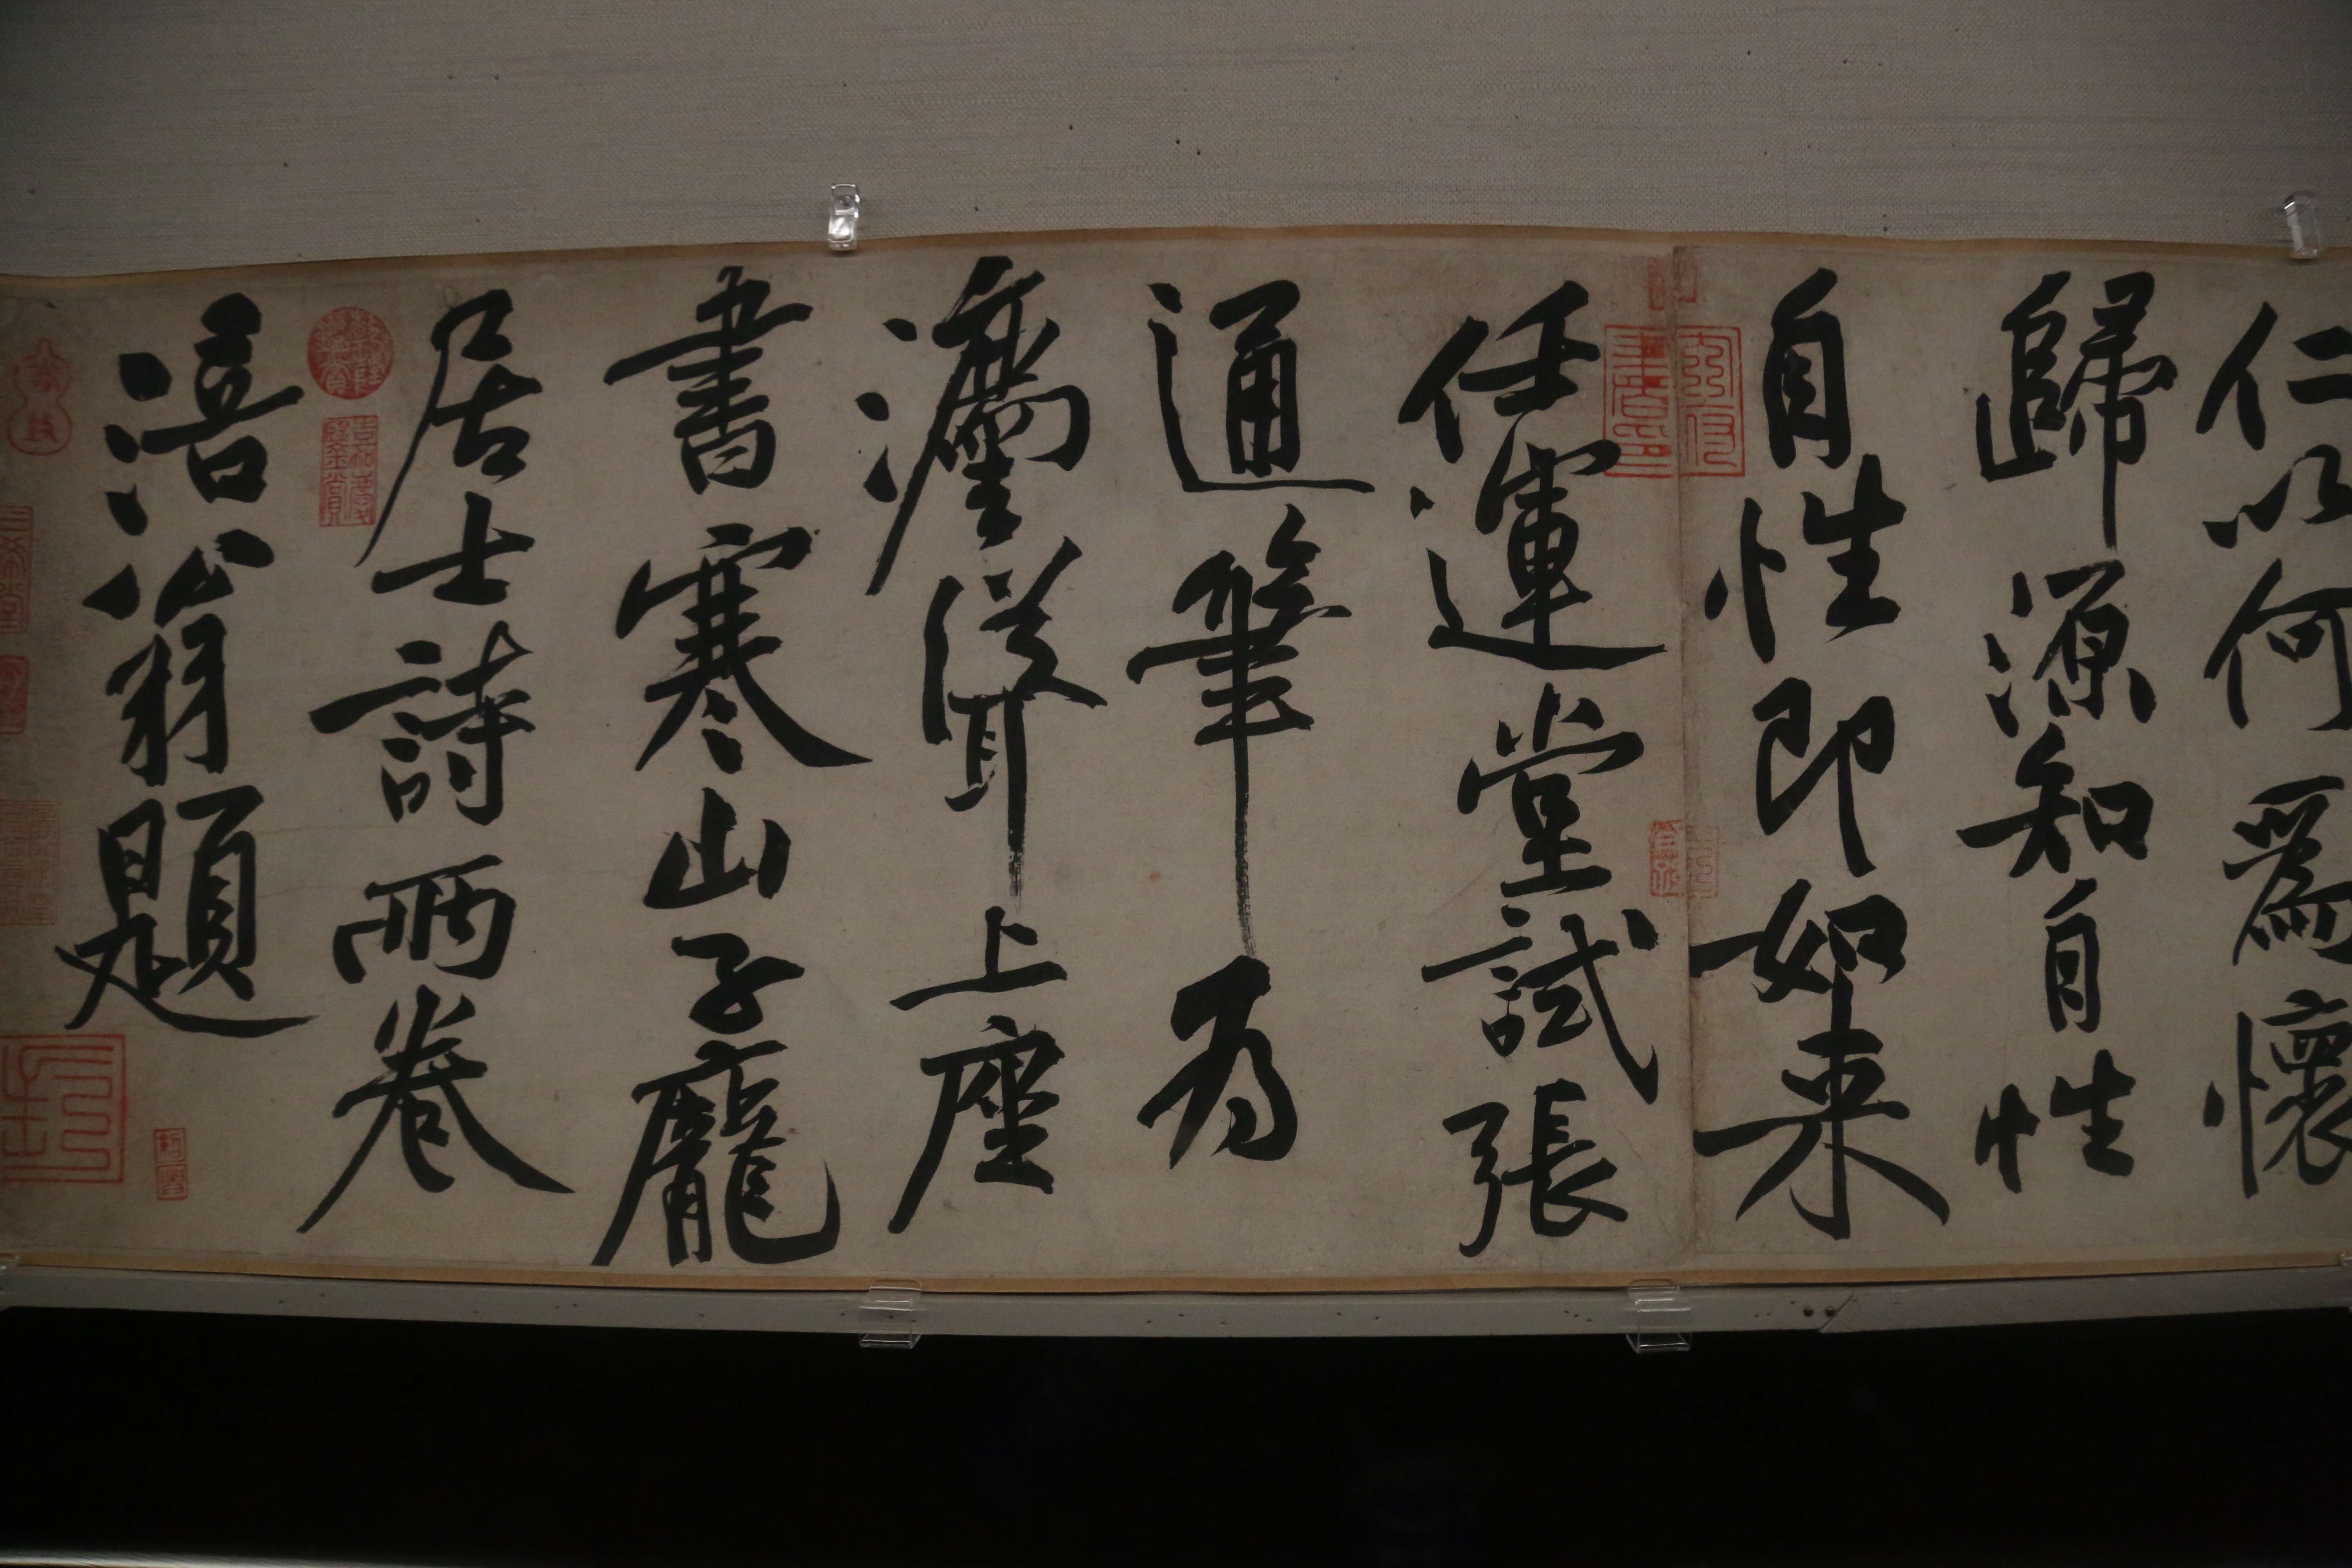 仁以何爲懷
歸源知自性
自性即如来
任運堂試張
通筆为
瀘㳂上座
書寒山子龐
居士詩兩卷
涪翁題